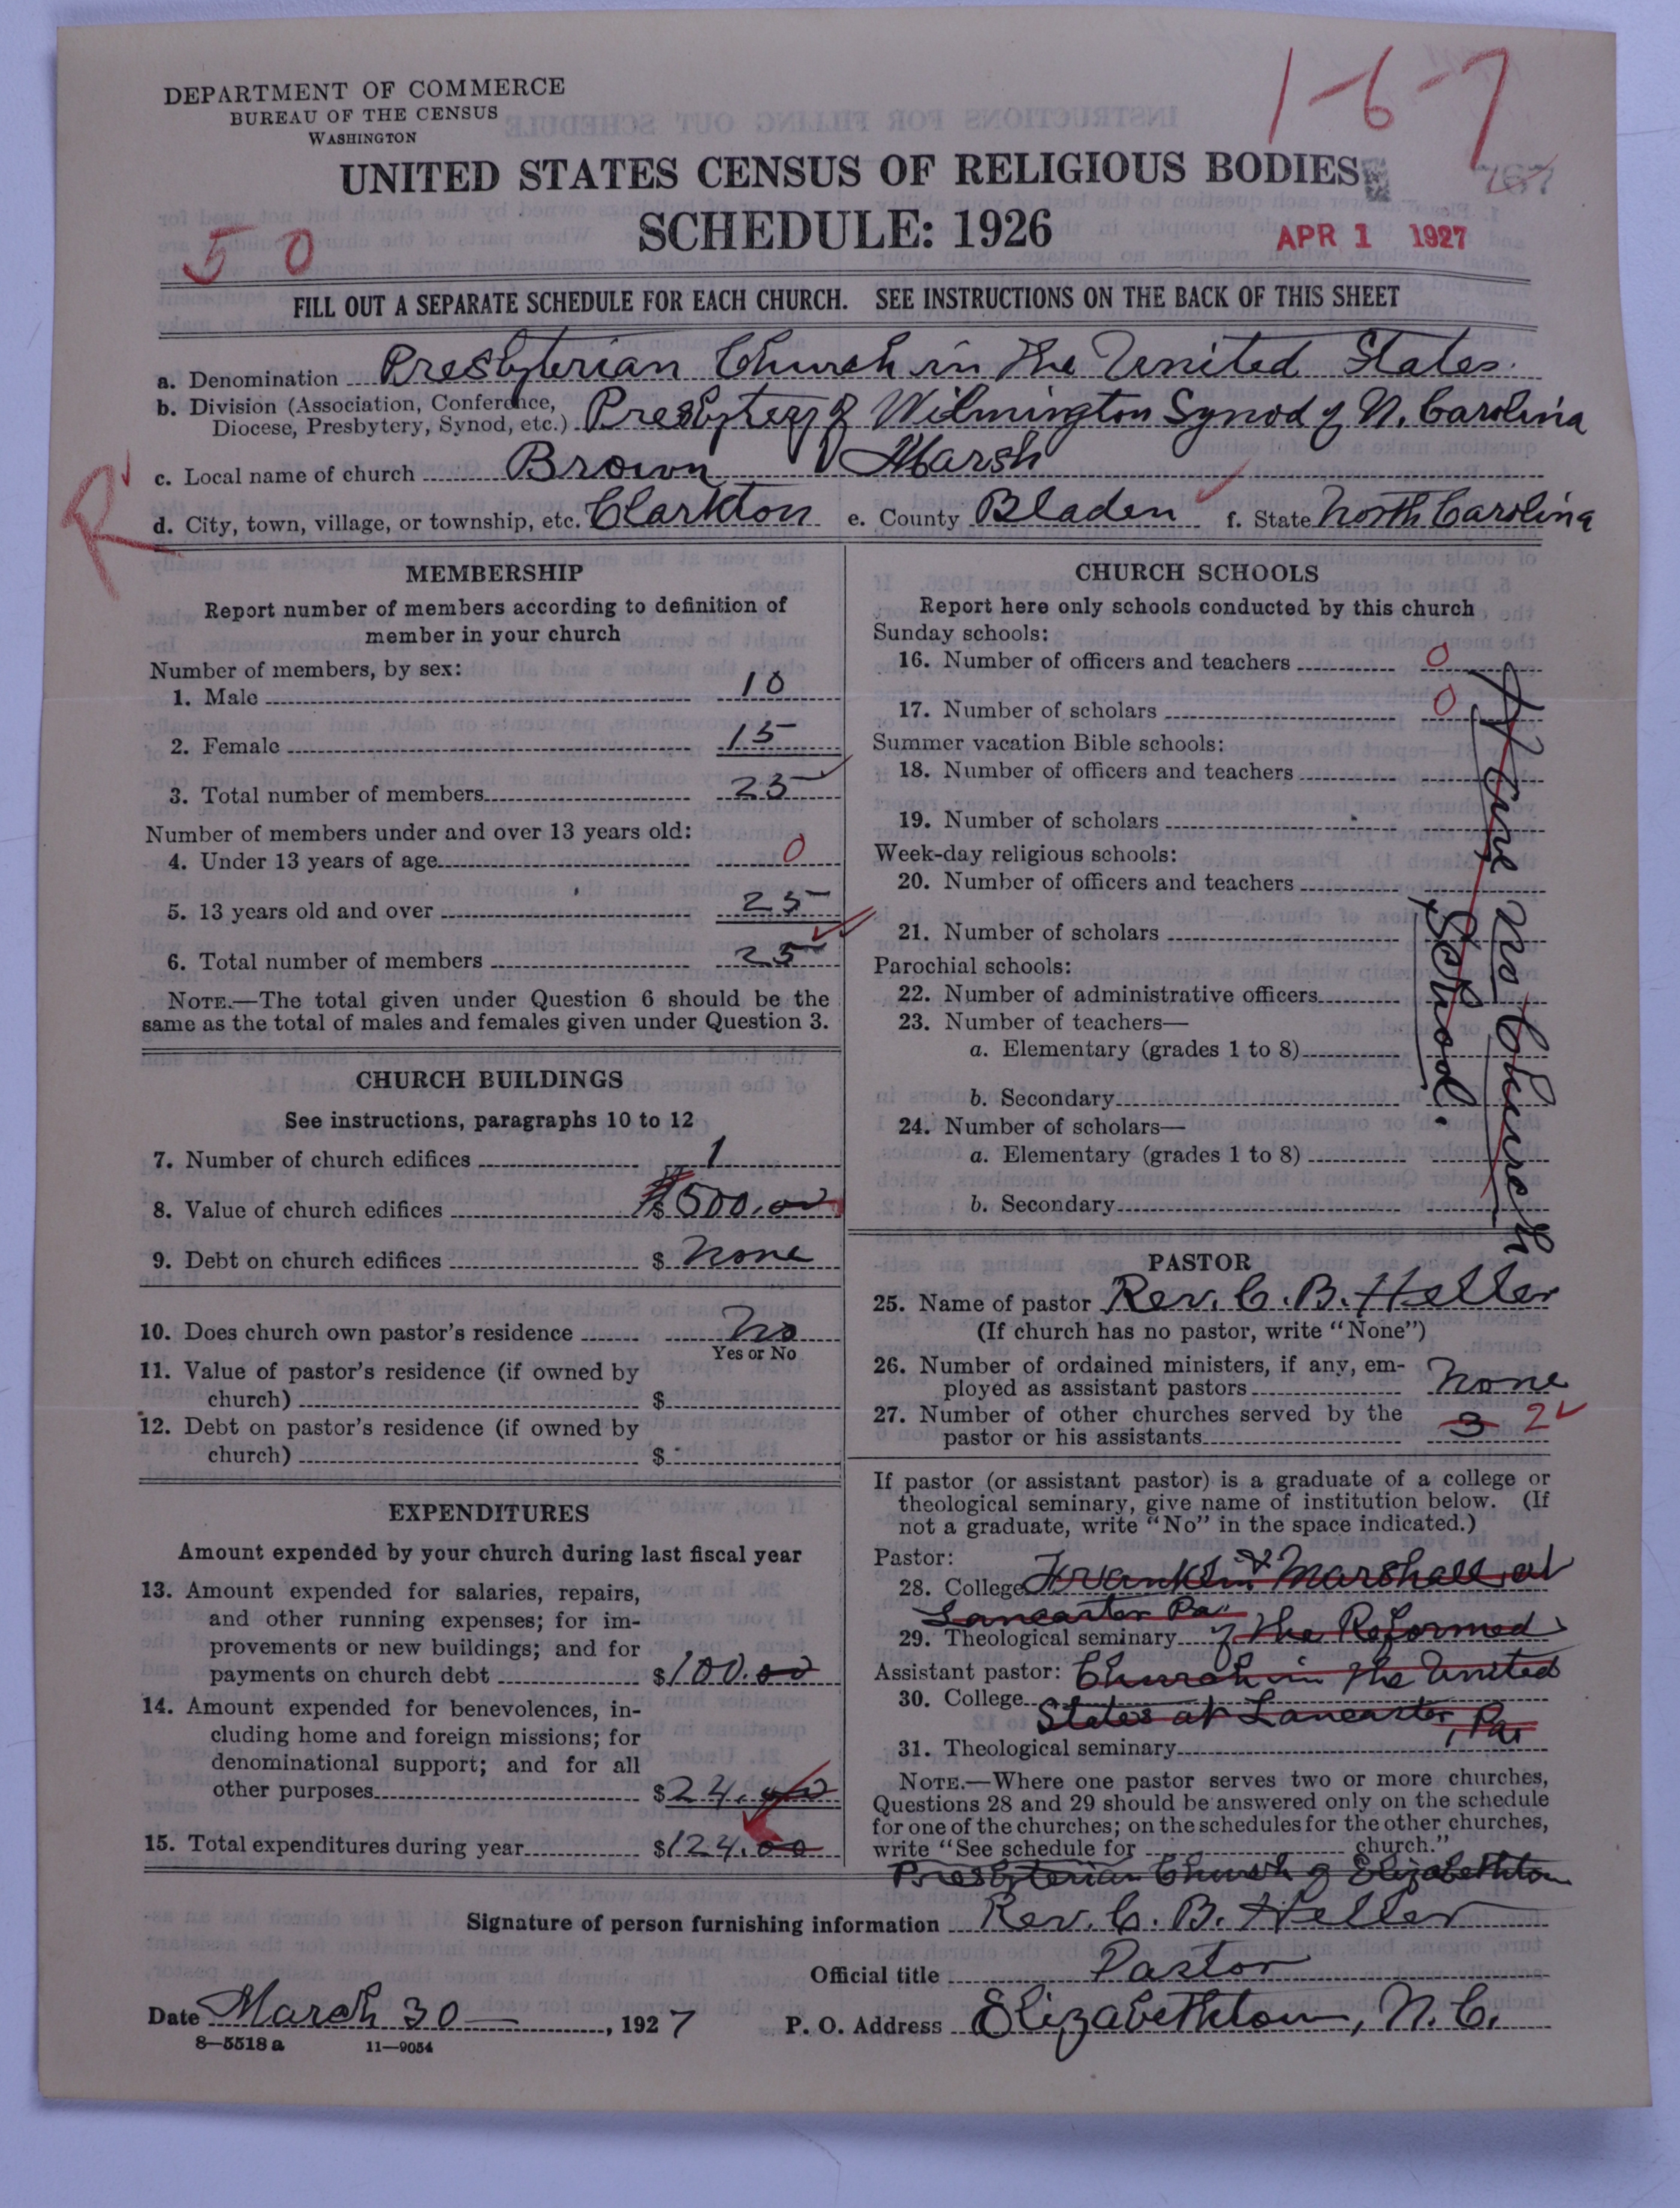 DEPARTMENT OF COMMERCE
BUREAU OF THE CENSUS
WASHINGTON
1-6-7
UNITED STATES CENSUS OF RELIGIOUS BODIES
767
SCHEDULE: 1926
50
APR 1 1927
FILL OUT A SEPARATE SCHEDULE FOR EACH CHURCH. SEE INSTRUCTIONS ON THE BACK OF THIS SHEET
a. Denomination Presbyterian Church in the United States.
b. Division (Association, Conference, Diocese, Presbytery, Synod, etc.) Presbytery of Wilmington Synod of N. Carolina
R
c. Local name of church Brown Marsh
d. City, town, village, or township, etc. Clarkton e. County Bladen f. State North Carolina
MEMBERSHIP
Report number of members according to definition of
member in your church
Number of members, by sex:
1. Male 10
2. Female 15
3. Total number of members 25
Number of members under and over 13 years old:
4. Under 13 years of age 0
5. 13 years old and over 25
6. Total number of members 25
NOTE.—The total given under Question 6 should be the
same as the total of males and females given under Question 3.
CHURCH BUILDINGS
See instructions, paragraphs 10 to 12
7. Number of church edifices 1
8. Value of church edifices $500.00
9. Debt on church edifices $ None
10. Does church own pastor's residence No
Yes or No
11. Value of pastor's residence (if owned by
church) $
12. Debt on pastor's residence (if owned by
church) $
EXPENDITURES
Amount expended by your church during last fiscal year
13. Amount expended for salaries, repairs,
and other running expenses; for im-
provements or new buildings; and for
payments on church debt $100.00
14. Amount expended for benevolences, in-
cluding home and foreign missions; for
denominational support; and for all
other purposes $24.00
15. Total expenditures during year $124.00
CHURCH SCHOOLS
Report here only schools conducted by this church
Sunday schools:
16. Number of officers and teachers 0
17. Number of scholars 0
Summer vacation Bible schools:
18. Number of officers and teachers
19. Number of scholars
Week-day religious schools:
20. Number of officers and teachers
21. Number of scholars
Parochial schools:
22. Number of administrative officers
23. Number of teachers—
a. Elementary (grades 1 to 8)
b. Secondary
24. Number of scholars—
a. Elementary (grades 1 to 8)
b. Secondary
Have no Church
School.
PASTOR
25. Name of pastor Rev. C. B. Heller
(If church has no pastor, write "None")
26. Number of ordained ministers, if any, em-
ployed as assistant pastors None
27. Number of other churches served by the
pastor or his assistants 3 2
If pastor (or assistant pastor) is a graduate of a college or
theological seminary, give name of institution below. (If
not a graduate, write "No" in the space indicated.)
Pastor:
28. College Franklin & Marshall, at
Lancaster Pa.
29. Theological seminary of the Reformed
Assistant pastor: Church in the United
30. College States at Lancaster, Pa.
31. Theological seminary
NOTE.—Where one pastor serves two or more churches,
Questions 28 and 29 should be answered only on the schedule
for one of the churches; on the schedules for the other churches,
write "See schedule for church."
Presbyterian Church of Elizabethton
Signature of person furnishing information Rev. C. B. Heller
Official title Pastor
Date March 30, 1927 P. O. Address Elizabethtown, N. C.
8—5518 a 11—9054